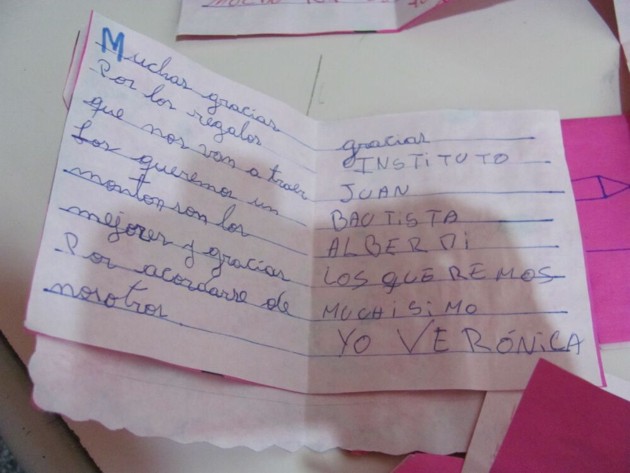 Muchas gracias
Por los regalos
que nos van a traer
Los queremos un
monton, son los
mejores y gracias
Por acordarse de
nosotros
gracias
INSTITUTO
JUAN
BAUTISTA
ALBERDI
LOS QUEREMOS
MUCHISIMO
YO VERÓNICA